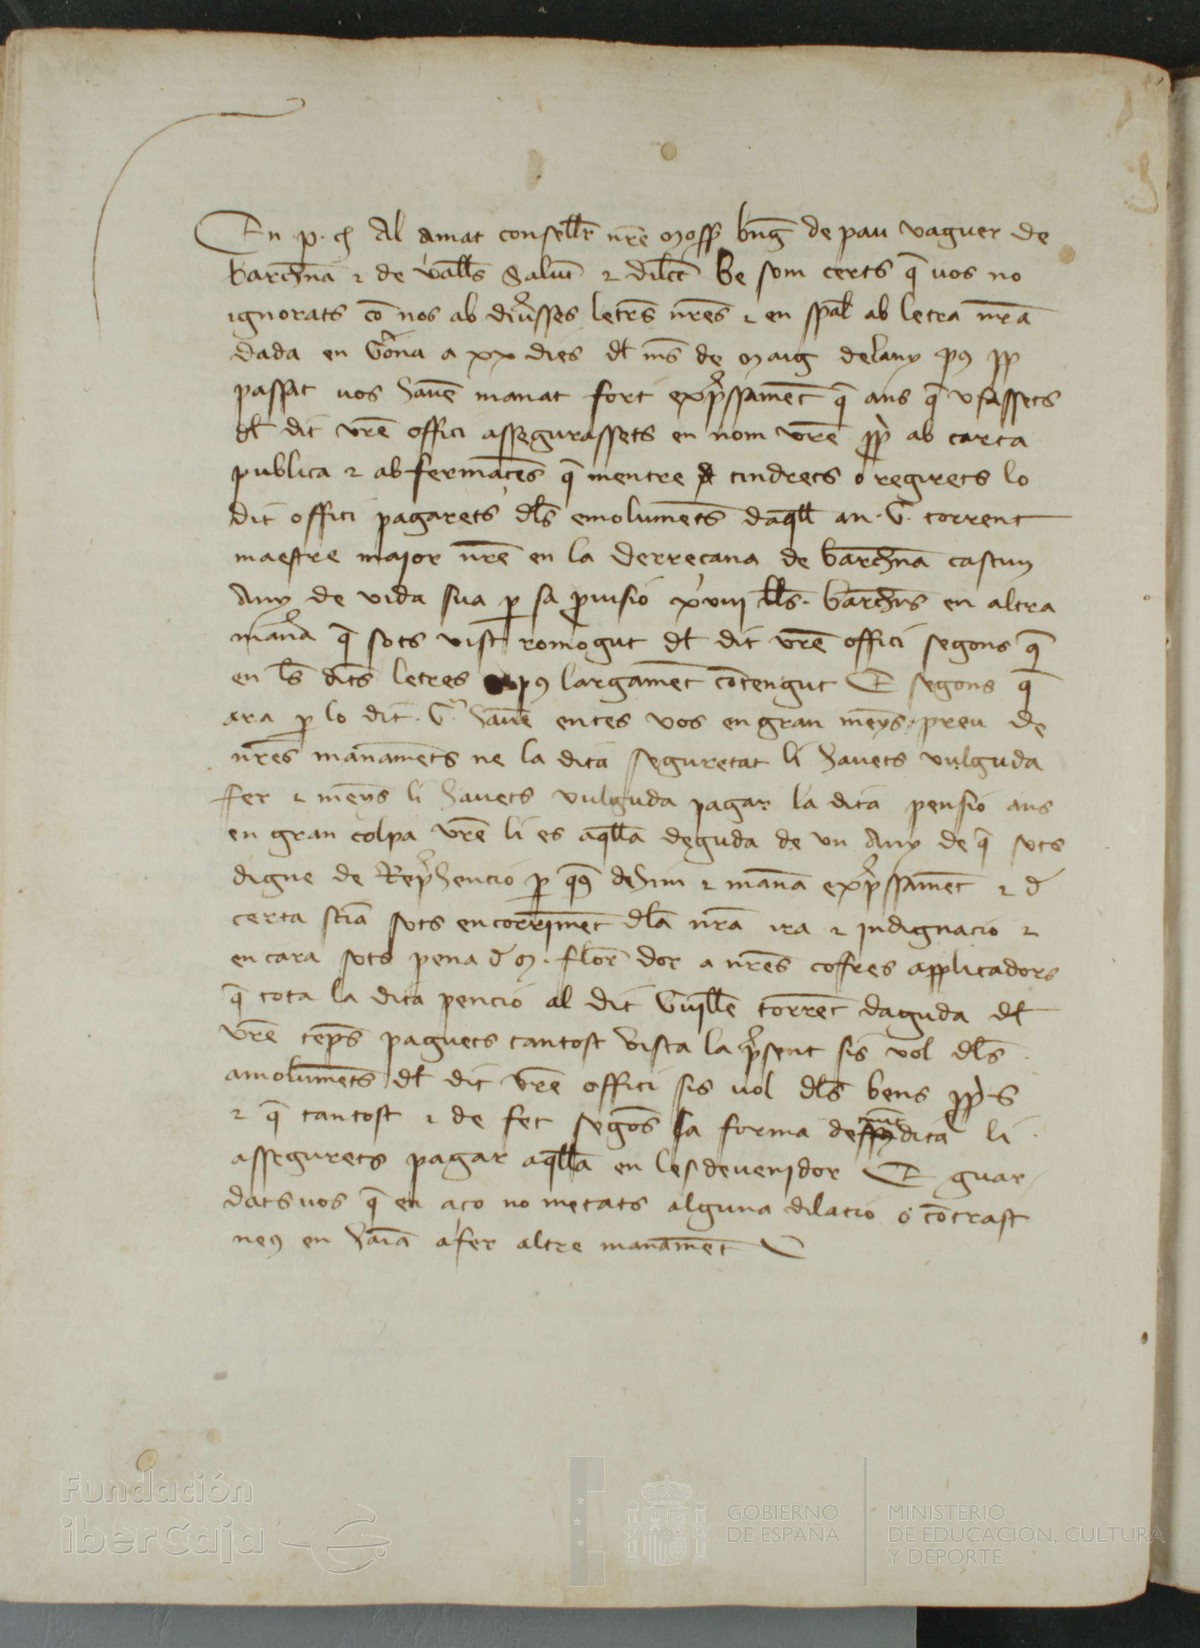 En .p. ch Al amat consellr̄ nr̄e moss̄ bn̄g de pau vaguer de
barchn̄a ⁊ de valls̄ Salut̄ ⁊ dilcc̄ Be som certs q̄ vos no
ignorats cō nos ab diu̓sses letrs̄ nr̄es ⁊ en spāl ab letra nr̄a
dada en Gōna a xx dies dl̄ ms̄ de maig delany pus pp̄
passat vos hauē manat fort exp̓ssamēt q̄ ans q̄ vsassets
dl̄ dit vr̄e offici assegurassets en nom vr̄e pp̓ ab carta
publica ⁊ ab fermācēs q̄ mentre tindrets o regirets lo
dit offici pagarets dls̄ emolumēts daqll̄ an .G. torrent
maestre maior nr̄e en la derreçana de barchn̄a cascun
Any de vida sua p̱ sa p̱uisio xviii lls̄. barchn̄s en altra
manā q̄ sots vist romogut dl̄ dit vr̄e offici segons q̄
en ls̄ dits̄ letres pus largamēt cōtengut E segons q̄
ara p̱ lo dit .G. hauē entes vos en gran mēys preu de
nr̄es manamēts ne la dita seguretat li hauets vulguda
fer ⁊ mēys li hauets vulguda pagar la dita pensio ans
en gran colpa vr̄e li es aqll̄a deguda de vn Any de q̄ sots
digne de Rep̓hencio p̱ q̄us dehim ⁊ manā exp̓ssamēt ⁊ d̄
certa sciā sots encorrimēt dl̄a nr̄a ira ⁊ indignacio ⁊
encara sots pena d̄ m. flor̄ dor a nr̄es coffres applicadors
q̄ tota la dita pencio al dit Guillē torrēt daguda dl̄
vr̄e tēps paguets tantost vista la p̓sent sis vol dls̄
amolumēts dl̄ dit vr̄e offici sis vol dls̄ bens pp̓s
⁊ q̄ tantost ⁊ de fet segōs la forma dedita li
assegurets pagar aqll̄a en lesdevenidor E guar
datsvos q̄ en aço no metats alguna dilacio o cōtrast
neus en haiā afer altre manamēt
Fundación
iberCaja
GOBIERNO
DE ESPAÑA
MINISTERIO
DE EDUCACIÓN, CULTURA
Y DEPORTE